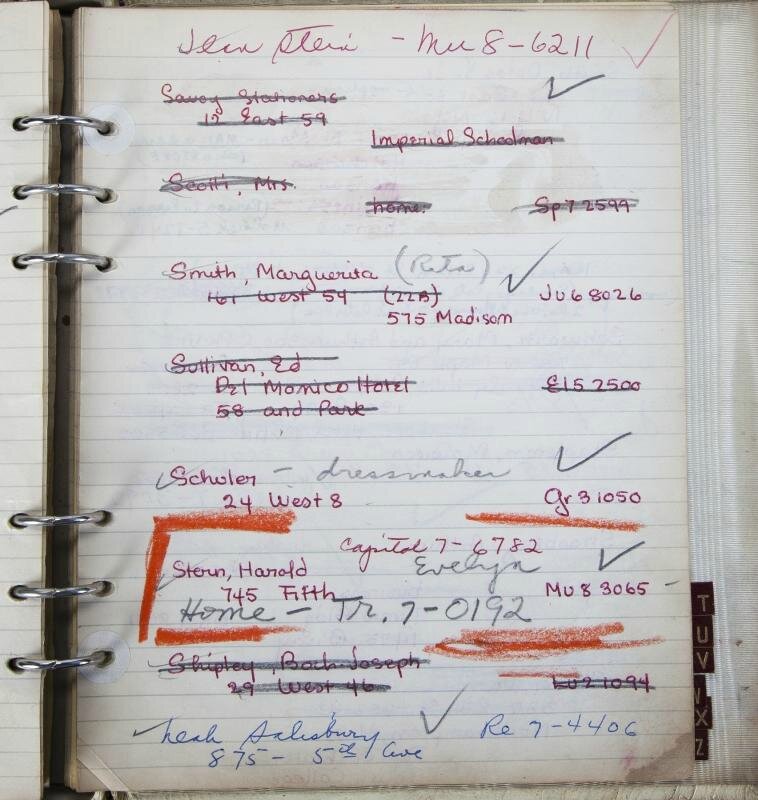 Jean Stein - Mu 8-6211
Savoy Stationers
12 East 59
Imperial Schoolman
Scotti, Mrs.
home. Sp 7 2599
Smith, Marguerita (Rita)
161 West 54 (22B) JU 6 8026
575 Madison
Sullivan, Ed
Del Monico Hotel El 5 2500
58 and Park
Scholer - dressmaker
24 West 8 Gr 3 1050
Capitol 7-6782
Stern, Harold Evelyn
745 Fifth MU 8 3065 -
Home - Tr. 7-0192
Shipley, Bach Joseph
29 West 46 LU 2 1094
Leah Salisbury Re 7-4406
875 - 5th Ave
T
U
V
W
X
Z